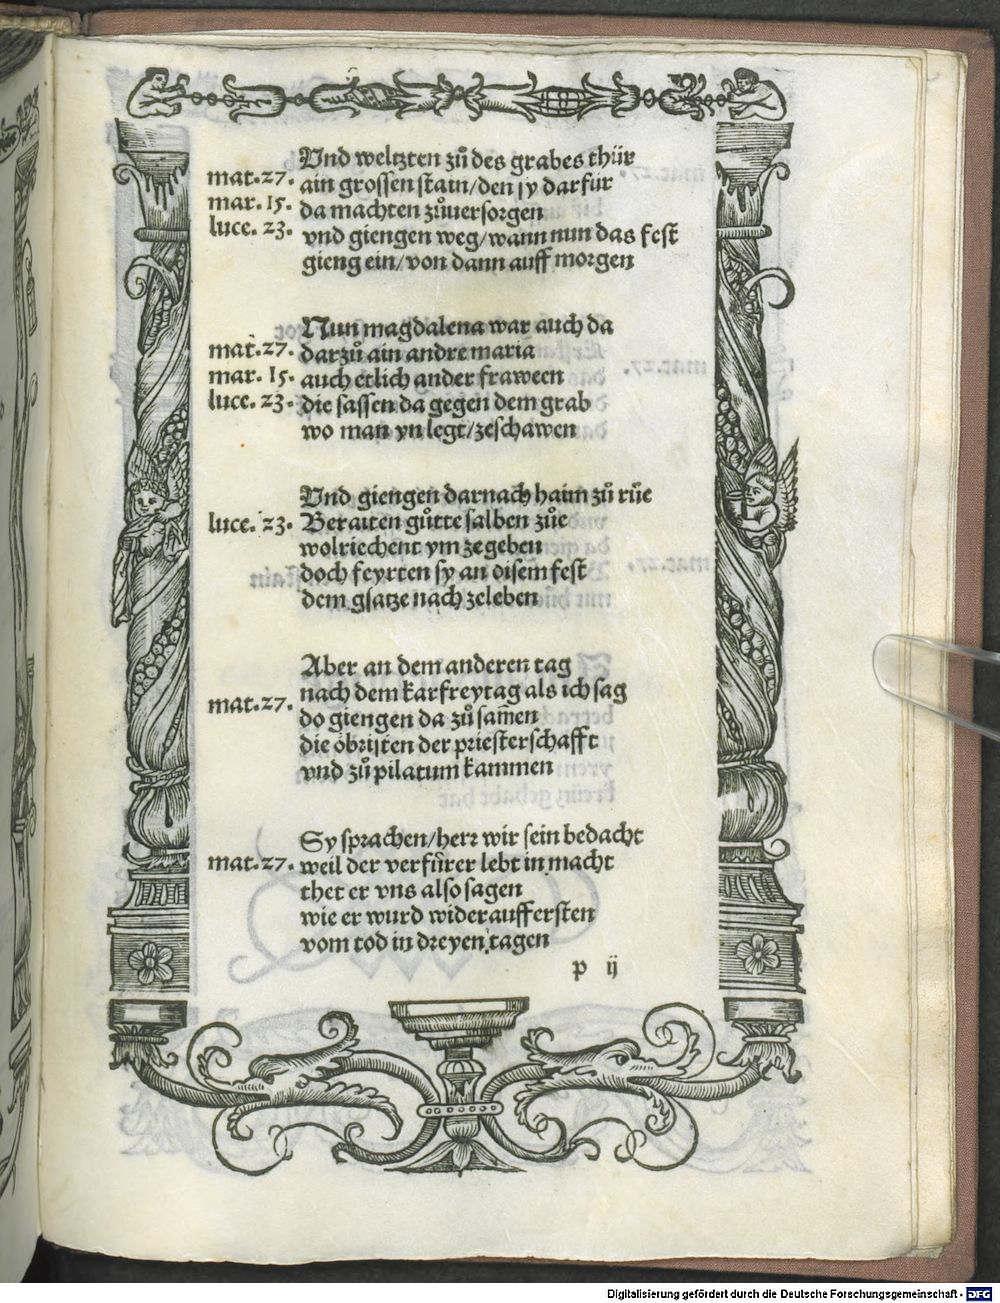 Vnd weltzten zů des grabes thür
mat.27. ain grossen stain/den sy darfür
mar. 15. da machten zůuersorgen
luce. 23. vnd giengen weg/wann nun das fest
gieng ein/von dann auff morgen
Nun magdalena war auch da
mat.27. darzů ain andre maria
mar. 15. auch etlich ander fraween
luce. 23. die sassen da gegen dem grab
wo man yn legt/zeschawen
Vnd giengen darnach haim zů růe
luce. 23. Beraiten gůtte salben zůe
wolriechent ym zegeben
doch feyrten sy an disem fest
dem gsatze nach zeleben
Aber an dem anderen tag
nach dem karfreytag als ich sag
mat.27. do giengen da zů sam̄en
die öbristen der priesterschafft
vnd zů pilatum kammen
Sy sprachen/herr wir sein bedacht
mat.27. weil der verfürer lebt in macht
thet er vns also sagen
wie er wurd widerauffersten
vom tod in dreyen tagen
p ij
Digitalisierung gefördert durch die Deutsche Forschungsgemeinschaft - DFG